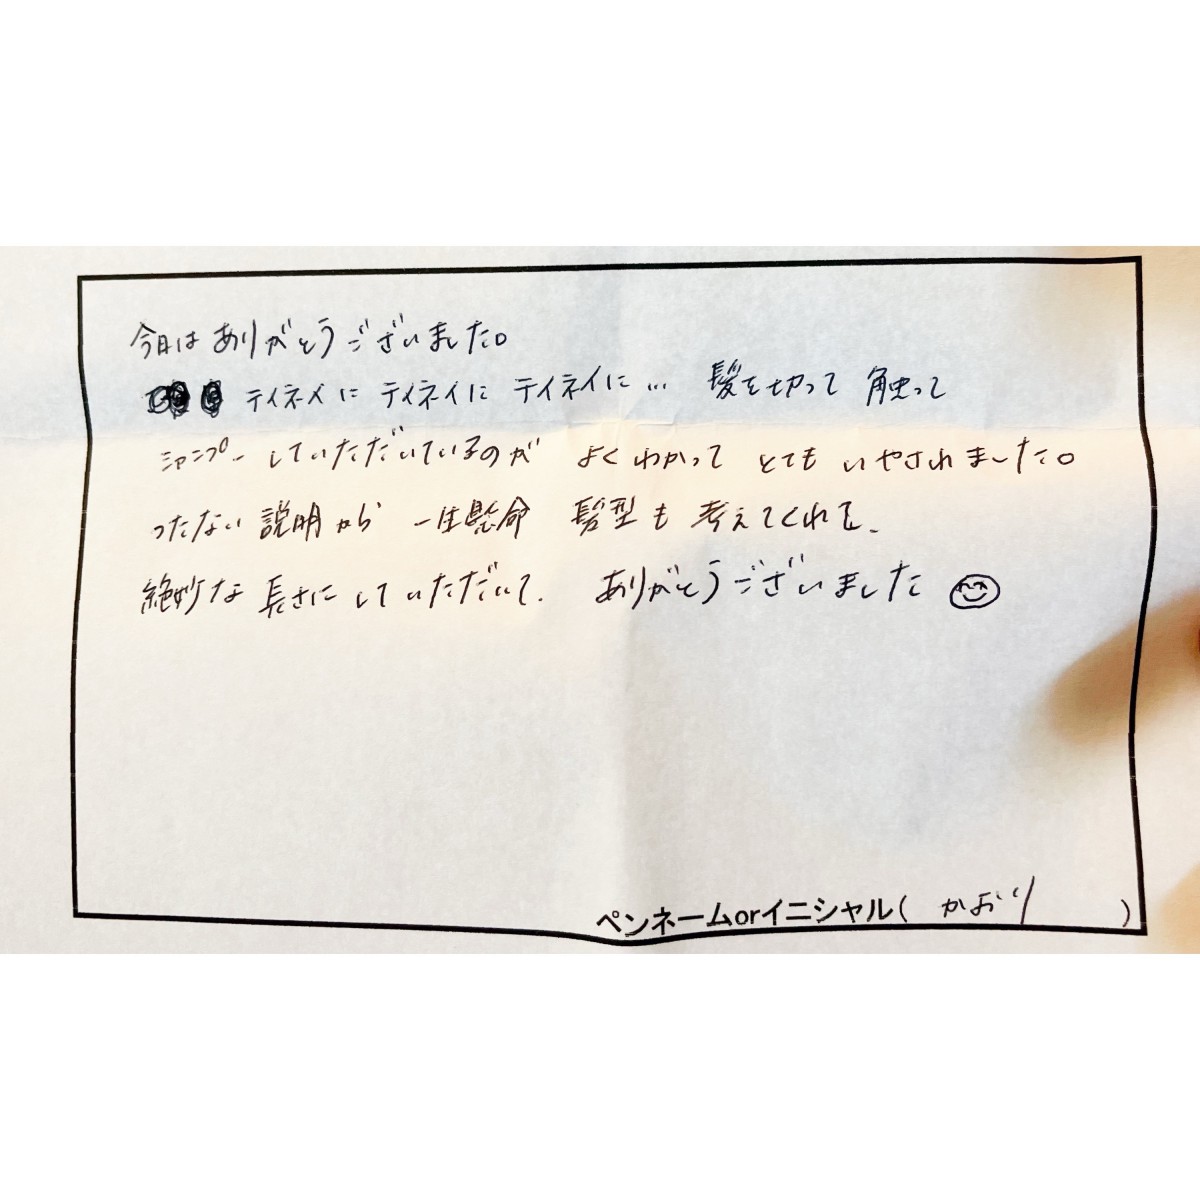 今日はありがとうございました。
テイネイに テイネイに テイネイに… 髪を切って 触って
シャンプーしていただいているのが よくわかって とても いやされました。
つたない 説明から 一生懸命 髪型も 考えてくれて、
絶妙な 長さに していただいて、 ありがとうございました
ペンネームorイニシャル( かおり )